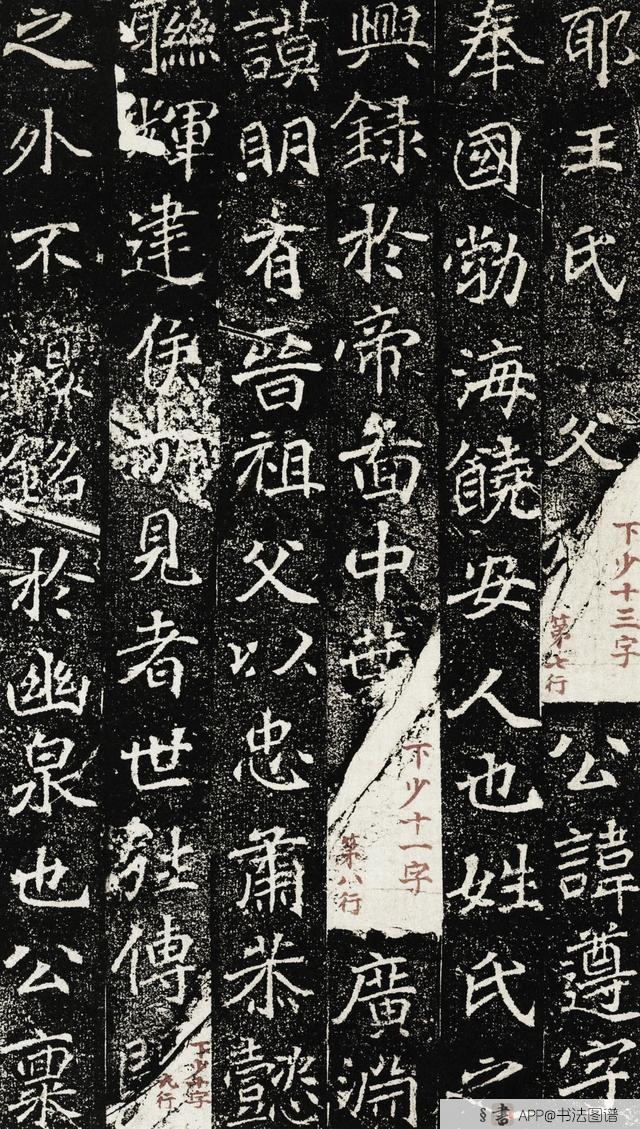 耶王氏 父
下少十三字
第七行
公諱遵字
奉國勃海饒安人也姓氏之
興録於帝啚中葉
下少十一字
第八行
廣淵
謨明有晉祖父以忠肅恭懿
聮輝建侯見者世傳
下少十字
九行
之外不復銘於幽泉也公稟
書 APP@书法图谱